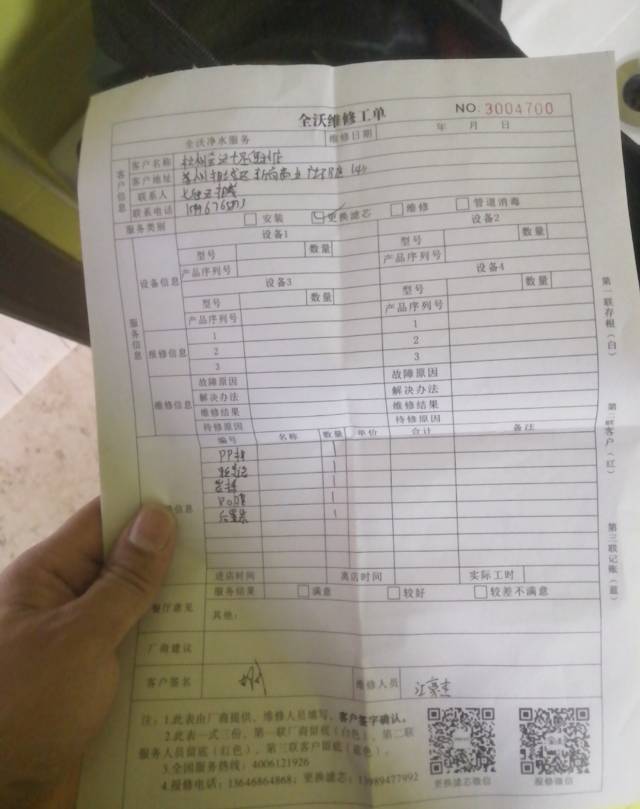 全沃维修工单
NO. 3004700
全沃净水服务 维修日期 年 月 日
客户信息
客户名称
客户地址
联系人
联系电话
服务类别 安装 更换滤芯 维修 管道消毒
服务信息
设备信息
设备1 设备2
型号 数量 型号 数量
产品序列号 产品序列号
设备3 设备4
型号 数量 型号 数量
产品序列号 产品序列号
报修信息
1 1
2 2
3 3
维修信息
故障原因 故障原因
解决办法 解决办法
维修结果 维修结果
待修原因 待修原因
信息
编号 名称 数量 单价 合计 备注
PP棉 1
1
1
1
1
进店时间 离店时间 实际工时
餐厅意见
服务结果 满意 较好 较差不满意
其他:
厂商建议
客户签名 维修人员
注:1.此表由厂商提供、维修人员填写、客户签字确认。
2.此表一式三份、第一联厂商留底(白色)、第二联
服务人员留底(红色)、第三联客户留底(蓝色)。
3.全国服务热线:4006121926
4.报修电话:13646864868;更换滤芯:13989477992
更换滤芯微信 报修微信
第一联存根(白)
第二联客户(红)
第三联记账(蓝)